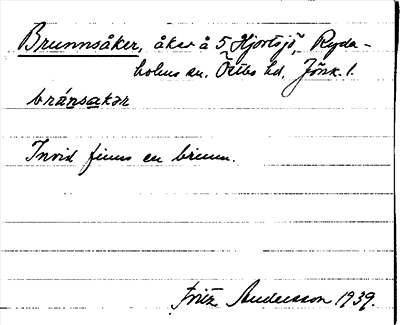 Brunnsåker, åker å 5 Hjortsjö, Ryda-
holms sn. Östbo hd. Jönk. l.
bránsakər
Invid finns en brunn.
Fritz Andersson 1939.